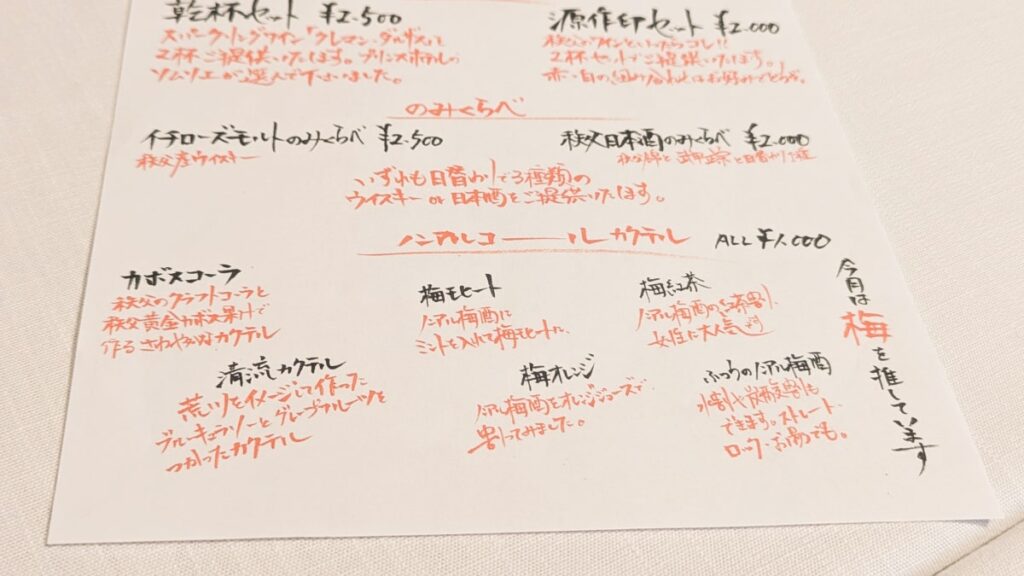 乾杯セット ¥2,500
スパークリングワイン「クレマン・ダルザス」を
2杯ご提供いたします。プリンスホテルの
ソムリエが選んで下さいました。
源作印セット ¥2,000
秩父ワインといったらコレ!!
2杯セットでご提供いたします。
赤・白の組み合わせはお好みでどうぞ。
のみくらべ
イチローズモルトのみくらべ ¥2,500
秩父産ウイスキー
秩父日本酒のみくらべ ¥2,000
秩父錦と武甲正宗と日替わり1種
いずれも日替わりで3種類の
ウイスキー or 日本酒をご提供いたします。
ノンアルコールカクテル ALL ¥1,000
カボスコーラ
秩父のクラフトコーラと
秩父黄金カボス果汁で
作るさわやかなカクテル
梅モヒート
ノンアル梅酒に
ミントを入れて梅モヒートに。
梅紅茶
ノンアル梅酒の紅茶割り。
女性に大人気
清流カクテル
荒川をイメージして作った
ブルーキュラソーとグレープフルーツを
つかったカクテル
梅オレンジ
ノンアル梅酒をオレンジジュースで
割ってみました。
ふつうのノンアル梅酒
水割や炭酸割も
できます。ストレート・
ロック・お湯でも。
今月は梅を推しています